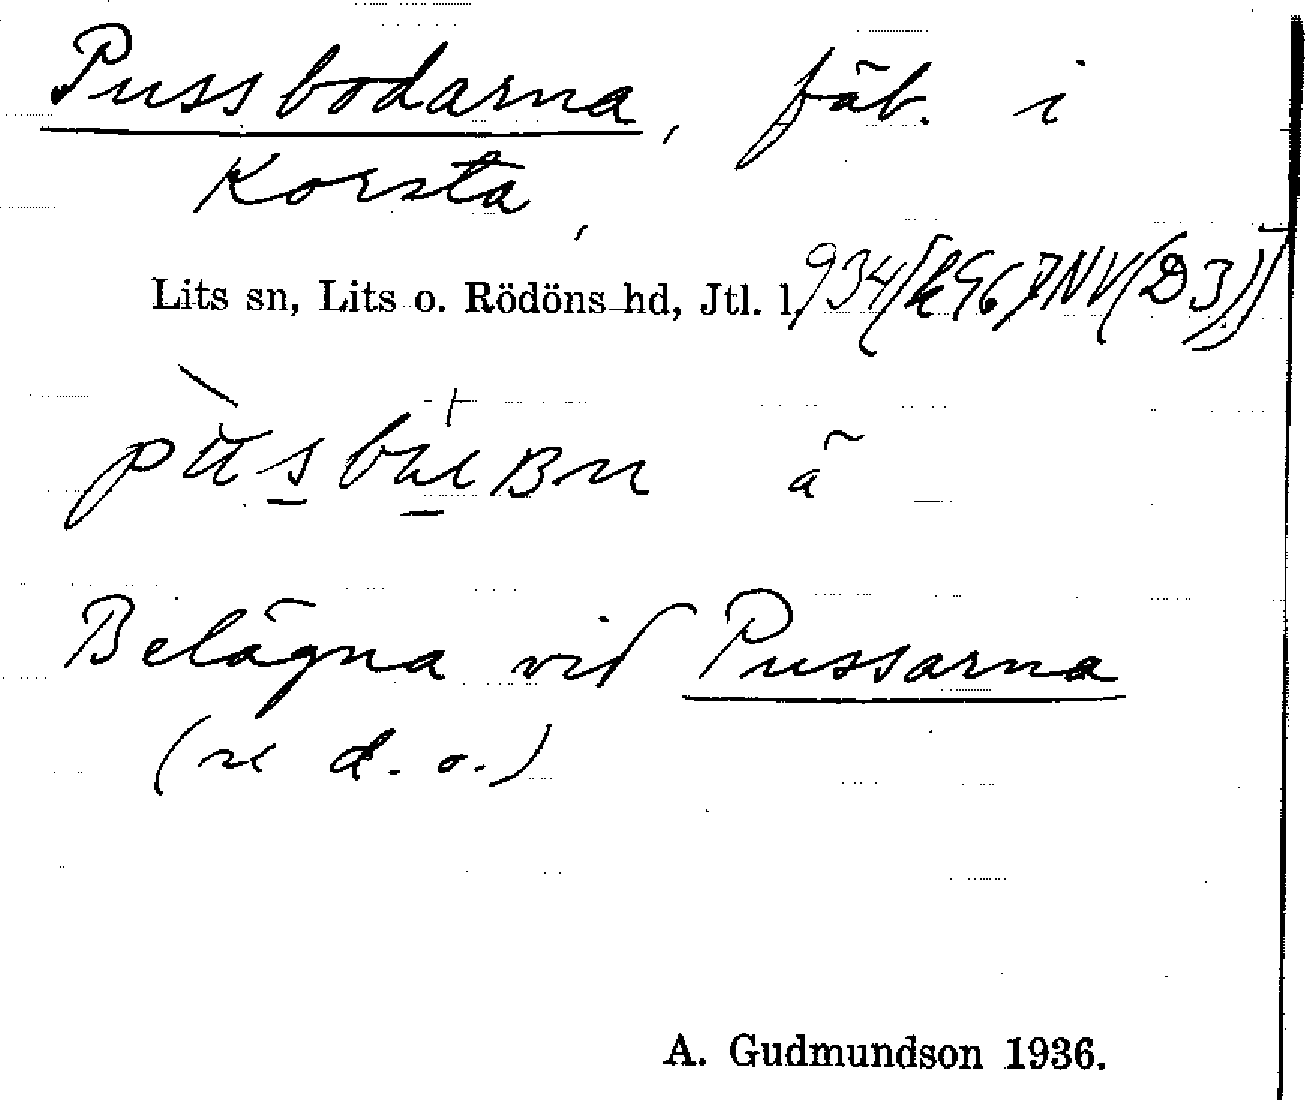 Pussbodarna, fäb. i
Korsta,
Lits sn, Lits o. Rödöns hd, Jtl. l.
ã
Belägna vid Pussarna
(se d. o.)
A. Gudmundson 1936.